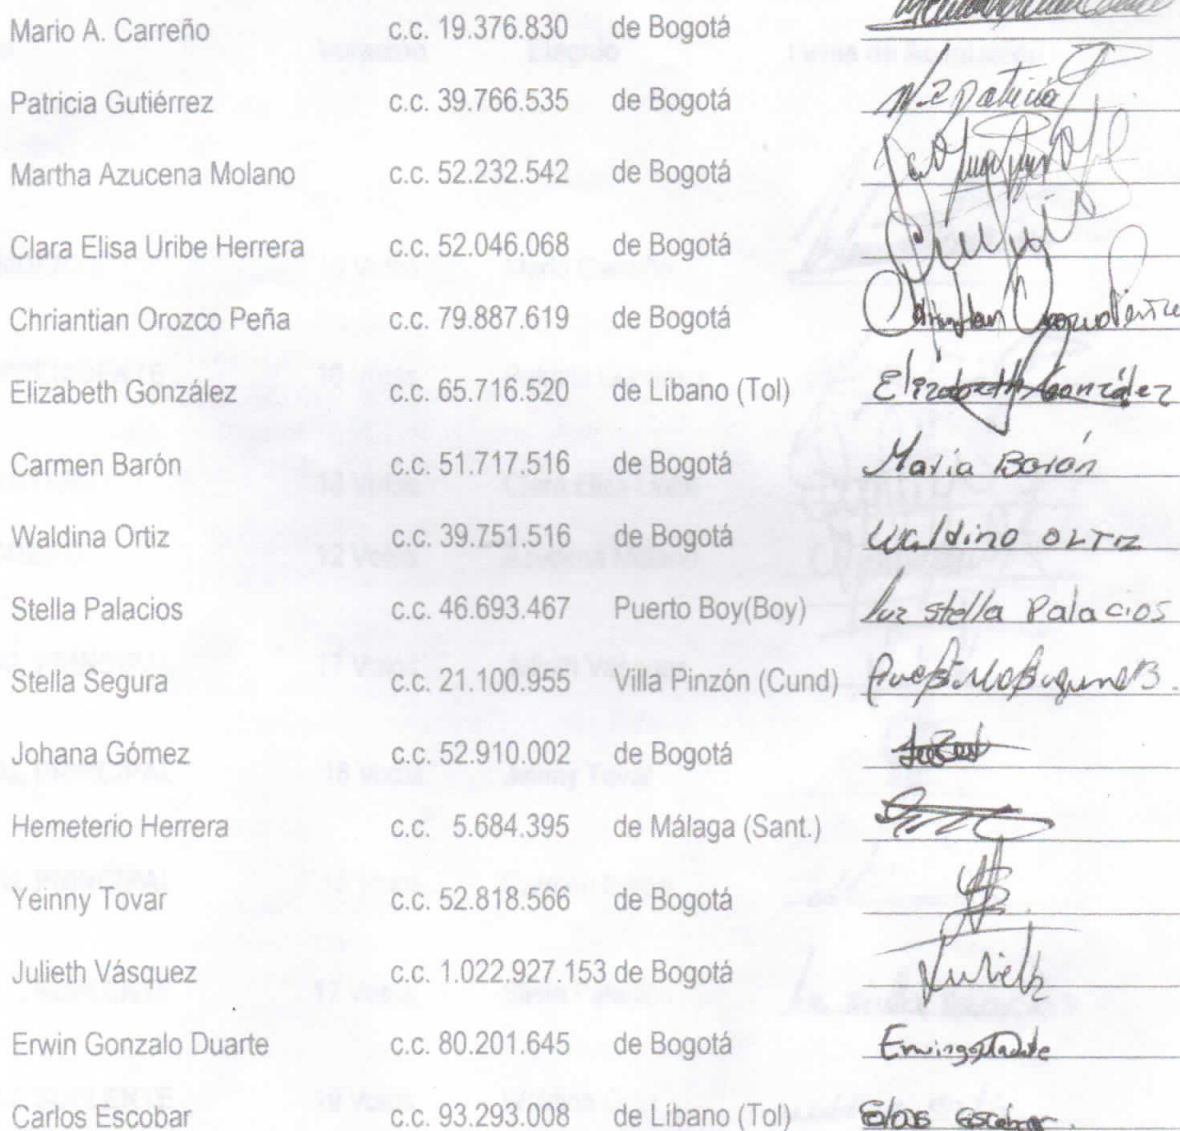 Mario A. Carreño c.c. 19.376.830 de Bogotá
Patricia Gutiérrez c.c. 39.766.535 de Bogotá Patricia
Martha Azucena Molano c.c. 52.232.542 de Bogotá
Clara Elisa Uribe Herrera c.c. 52.046.068 de Bogotá
Chriantian Orozco Peña c.c. 79.887.619 de Bogotá
Elizabeth González c.c. 65.716.520 de Libano (Tol) Elizabeth González
Carmen Barón c.c. 51.717.516 de Bogotá Maria Barón
Waldina Ortiz c.c. 39.751.516 de Bogotá Waldino ORTIZ
Stella Palacios c.c. 46.693.467 Puerto Boy(Boy) luz stella Palacios
Stella Segura c.c. 21.100.955 Villa Pinzón (Cund)
Johana Gómez c.c. 52.910.002 de Bogotá
Hemeterio Herrera c.c. 5.684.395 de Málaga (Sant.)
Yeinny Tovar c.c. 52.818.566 de Bogotá
Julieth Vásquez c.c. 1.022.927.153 de Bogotá Julieth
Erwin Gonzalo Duarte c.c. 80.201.645 de Bogotá
Carlos Escobar c.c. 93.293.008 de Libano (Tol) Escobar